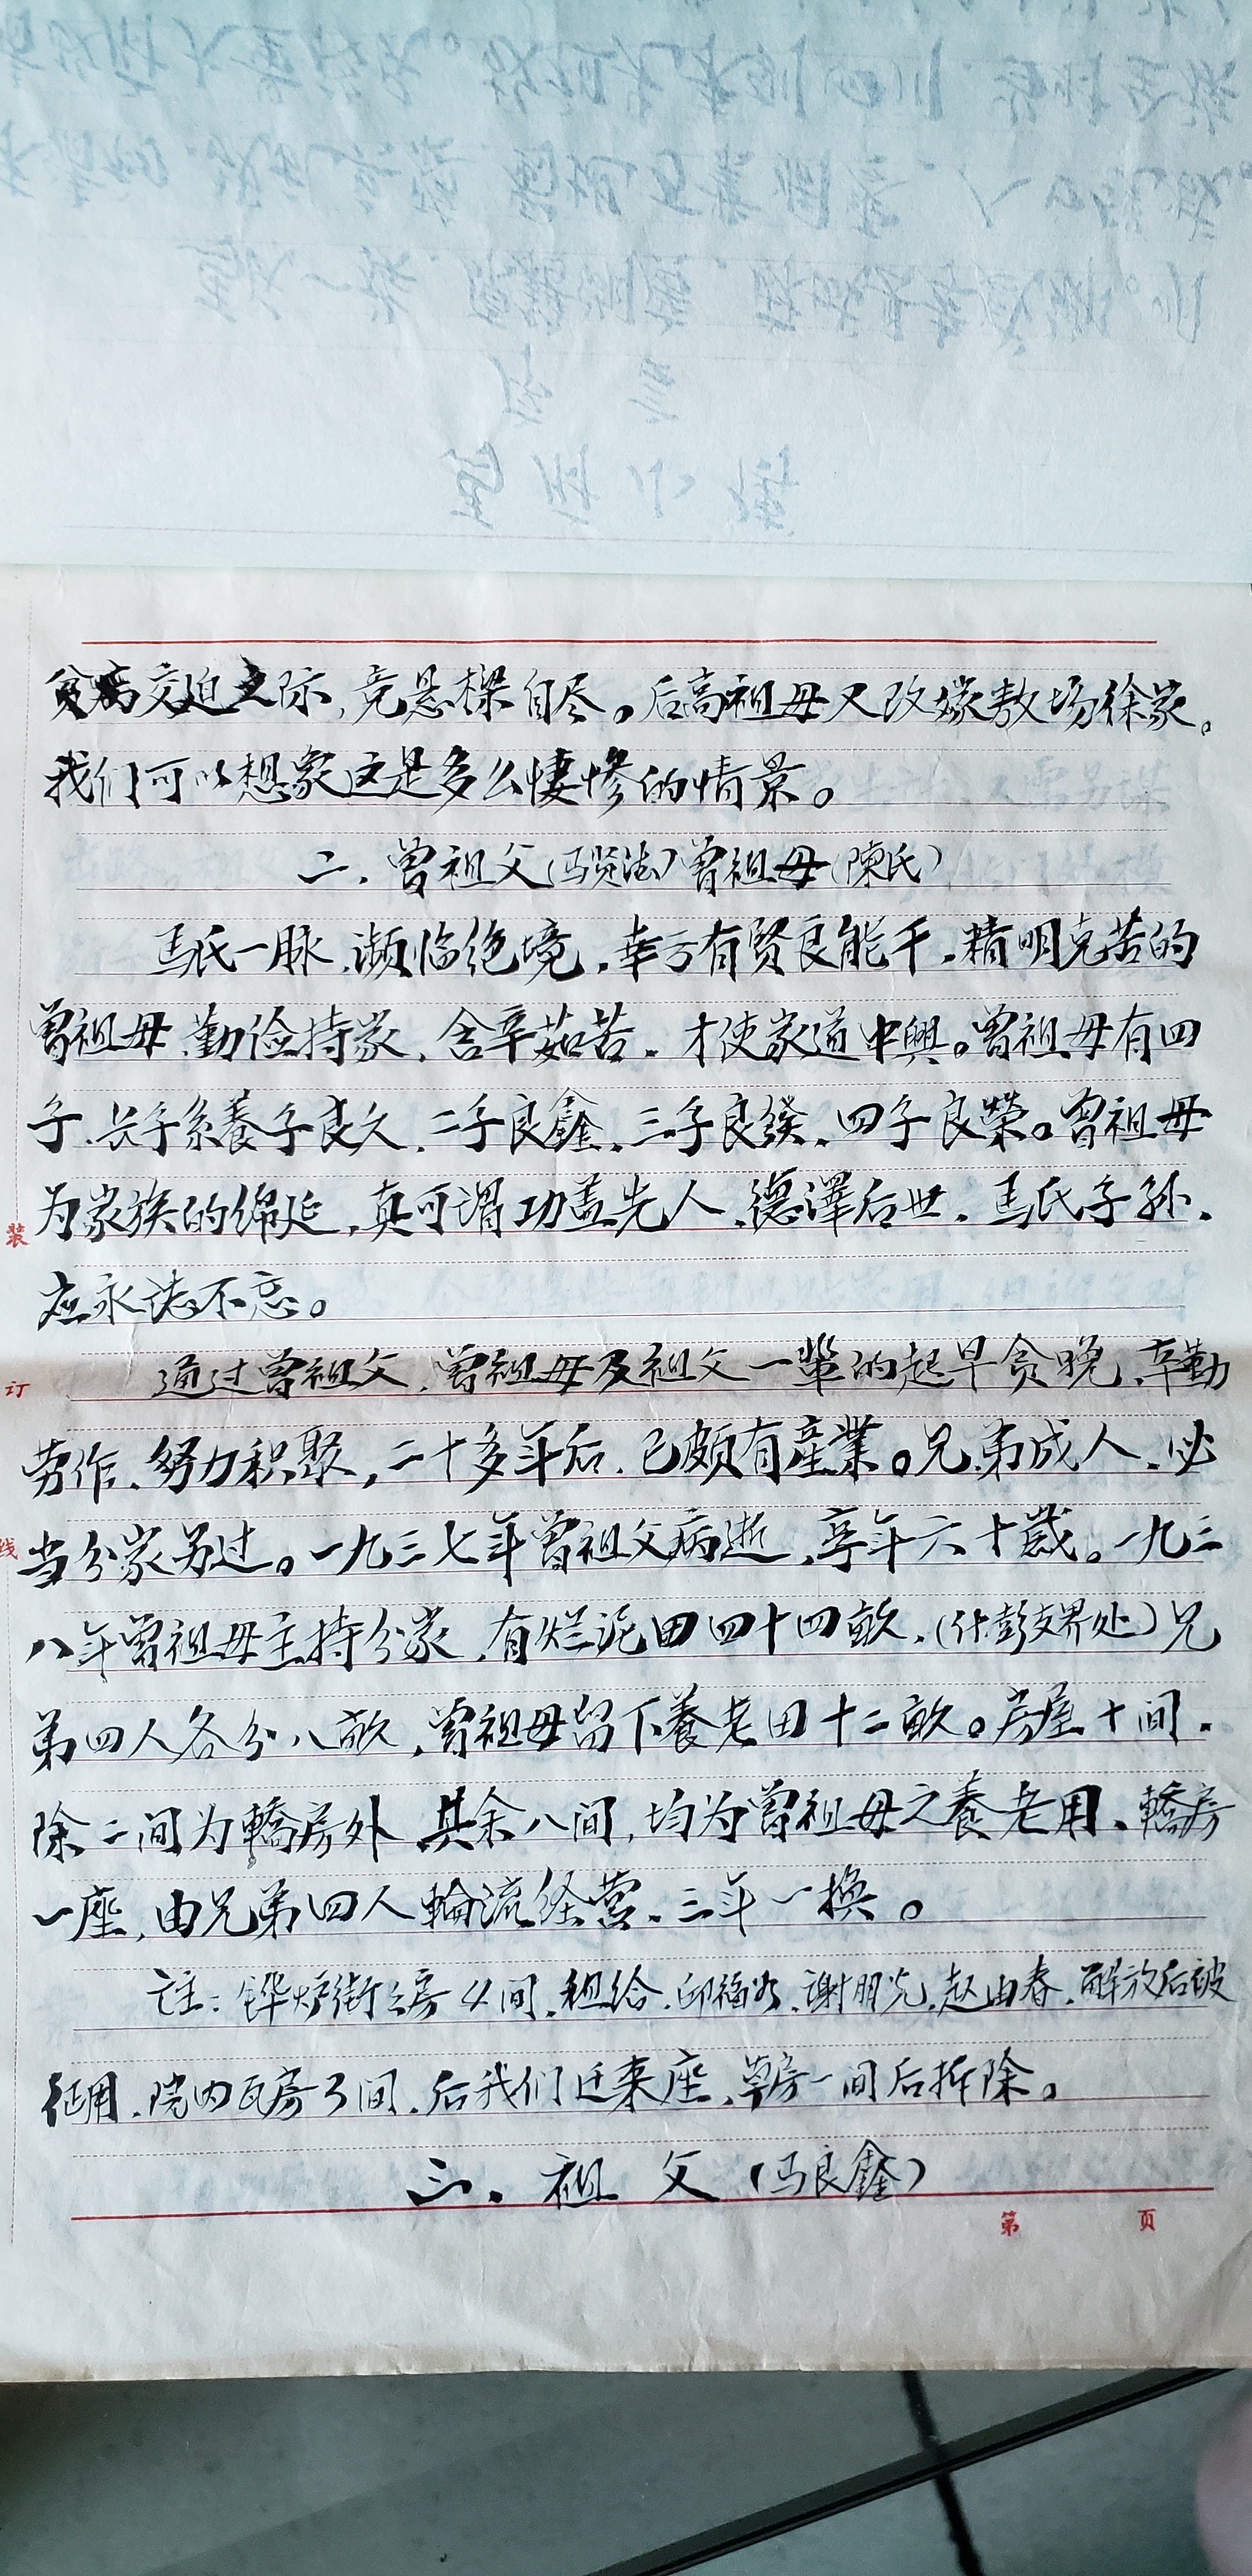 贫病交迫之际,竞悬樑自尽。后高祖母又改嫁敖场徐家。
我们可以想象这是多么悽惨的情景。
二.曾祖父(马贤法)曾祖母(陳氏)
馬氏一脉,濒临绝境,幸亏有贤良能干,精明克苦的
曾祖母,勤俭持家,含辛茹苦,才使家道中興。曾祖母有四
子,长子系養子良久,二子良鑫,三子良發,四子良榮。曾祖母
为家族的绵延,真可谓功盖先人,德澤后世,馬氏子孙,
应永誌不忘。
通过曾祖父,曾祖母及祖父一輩的起早贪晚,辛勤
劳作,努力积聚,二十多年后,已颇有產業。兄弟成人,必
当分家另过。一九三七年曾祖父病逝,享年六十歲。一九三
八年曾祖母主持分家,有烂泥田四十四畝,(什彭交界处)兄
弟四人各分八畝,曾祖母留下養老田十二畝。房屋十间,
除二间为轎房外,其余八间,均为曾祖母之養老用,轎房
一座,由兄弟四人輪流经营,三年一换。
註:铧炉街房4间,租给,邱福,谢朋光,赵由春,解放后被
征用,院内瓦房3间,后我们迁来座,草房一间后拆除。
三.祖父(马良鑫)
装
订
线
第 页